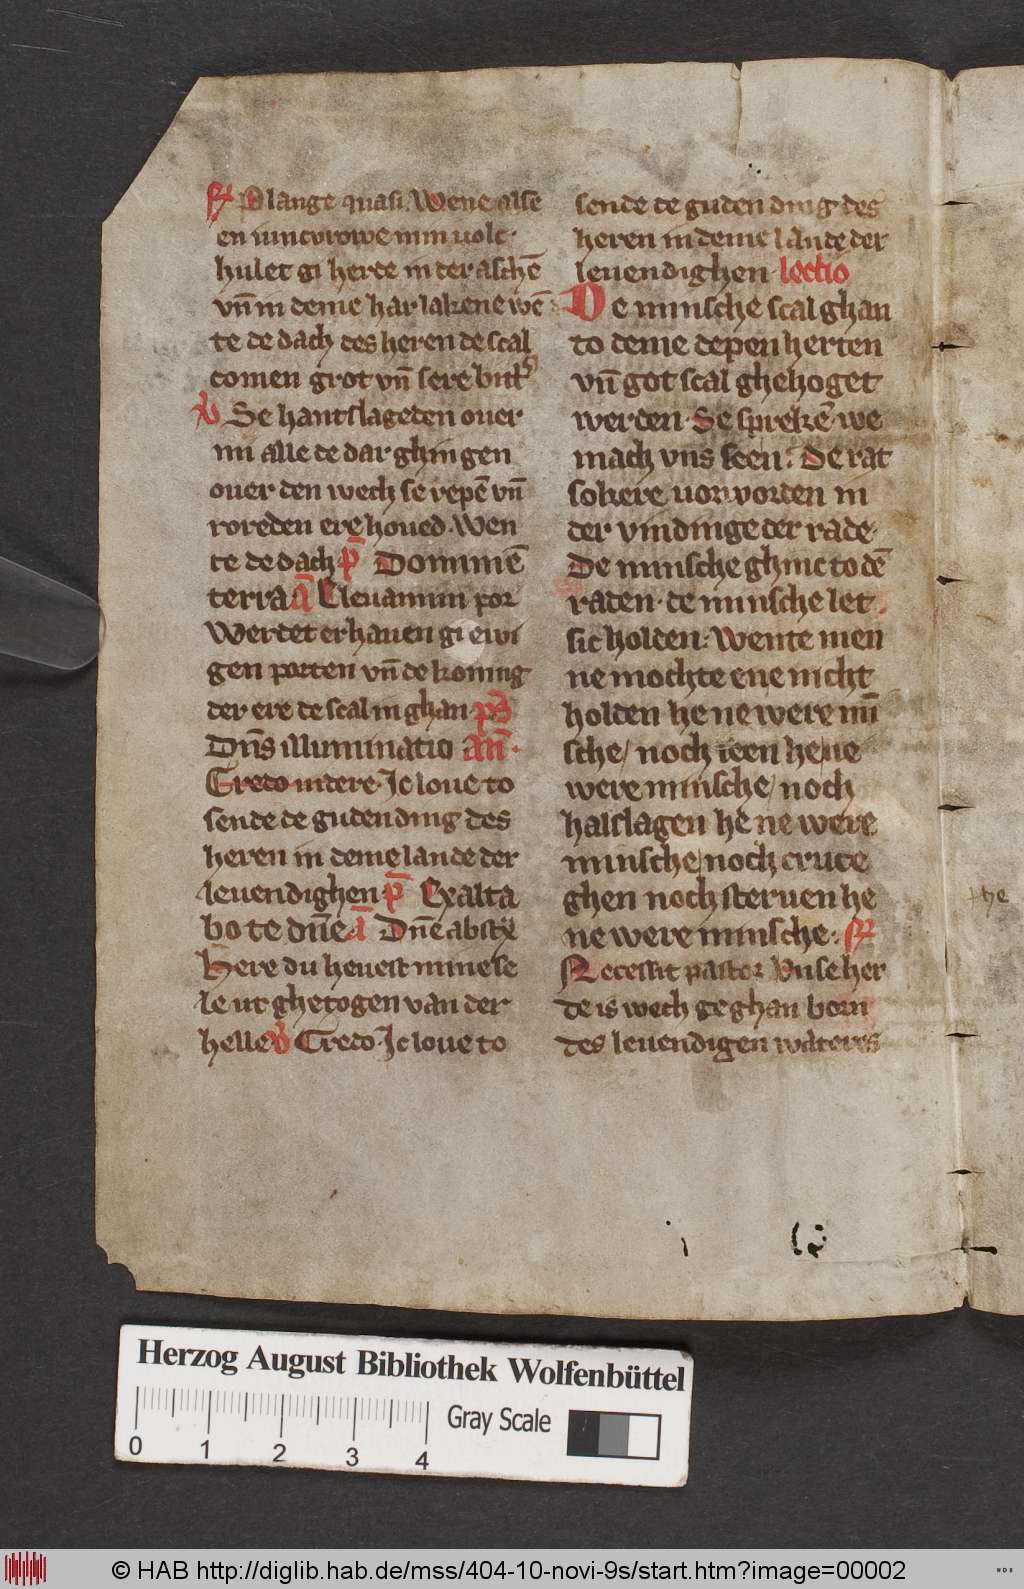 R Plange quasi. Wene alse
en iuncvrowe min volc·
hulet gi herde in der aschē
vn̄ in deme har lakene wē
te de dach des heren de scal
comen grot vn̄ sere bitt͛
V Se hantslageden ouer
mi alle de dar ghingen
ouer den wech se repē vn̄
roreden ere houed. Wen
te de dach· p̄ Dominiē
terra ā Eleuamini por
Werdet erhauen gi ewi
gen porten vn̄ de koning
der ere de scal in ghan p̄s
Dn̄s illuminatio an̄·
Credo uidere· Jc loue to
sende de guden ding des
heren in deme lande der
leuendighen p̄ Exalta
bo te dn̄e ā Dn̄e abstx̄
Here du heuest mine se
le ut ghetogen van der
helle V Credo· Jc loue to
sende de guden ding des
heren in deme lande der
leuendighen· lectio
De minsche scal ghan
to deme depen herten
vn̄ got scal ghehoget
werden· Se sprekē· we
mach vns seen: De rat
sokere uorvorden in
der vindinge der rade·
De minsche ghinc to dē
raden· de minsche let
sic holden: Wente men
ne mochte ene nicht
holden he ne were mī
sche/ noch seen he ne
were minsche/ noch
halslagen he ne were
minsche/ noch cruce
ghen noch steruen he
ne were minsche: R
Recessit pastor Vnse her
de is wech geghan born
des leuendigen wateres
he
Herzog August Bibliothek Wolfenbüttel
Gray Scale
0 1 2 3 4
© HAB http://diglib.hab.de/mss/404-10-novi-9s/start.htm?image=00002